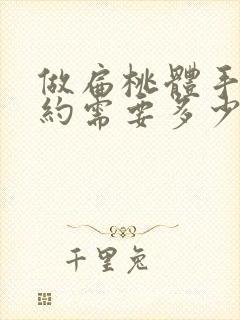 做扁桃體手
約需要多少
千里兔